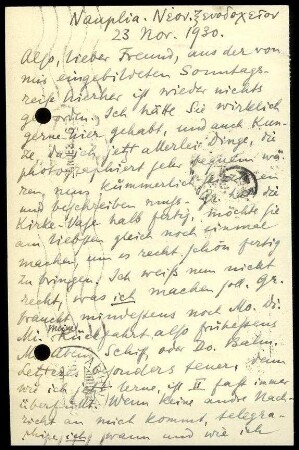 Nauplia. Νέον Ξενοδοχεῖον
23 Nov. 1930.
Also, lieber Freund, aus der von
mir eingebildeten Sonntags-
reise hierher ist wieder nichts
geworden. Ich hätte Sie wirklich
gerne hier gehabt, und auch Kun-
ze, da ich jetzt allerlei Dinge, die
photographiert sehr bequem wä-
ren, neu kümmerlich
und beschreiben muss. Gr. hat die
Kirke-Vase halb fertig, möchte sie
am liebsten gleich noch einmal
machen, um es recht schön fertig
zu bringen. Ich weiß nun nicht
recht, was ich machen soll. Gr.
braucht mindestens noch Mo. Di.
Mi. meine Rückfahrt also frühestens
Schiff, oder Do. Bahn.
Letzteres besonders teuer, denn
wie ich lerne, ist II fast immer
überfüllt. Wenn keine andre Nach-
richt an mich kommt, telegra-
phiere ich wann und wie ich